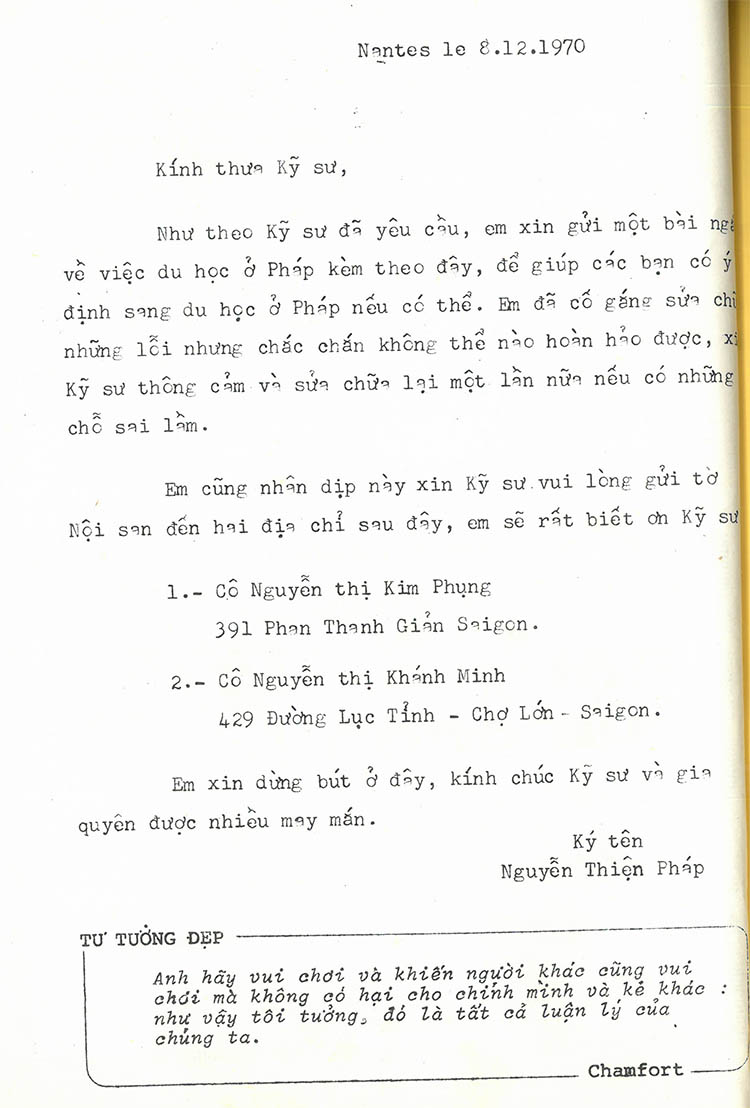 Nantes le 8.12.1970
Kính thưa Kỹ sư,
Như theo Kỹ sư đã yêu cầu, em xin gửi một bài
về việc du học ở Pháp kèm theo đây, để giúp các bạn có ý
định sang du học ở Pháp nếu có thể. Em đã cố gắng sửa
những lỗi nhưng chắc chắn không thể nào hoàn hảo được,
Kỹ sư thông cảm và sửa chữa lại một lần nữa nếu có những
chỗ sai lầm.
Em cũng nhân dịp này xin Kỹ sư vui lòng gửi tờ
Nội san đến hai địa chỉ sau đây, em sẽ rất biết ơn Kỹ sư
1.- Cô Nguyễn thị Kim Phụng
391 Phan Thanh Giản Saigon.
2.- Cô Nguyễn thị Khánh Minh
429 Đường Lục Tỉnh - Chợ Lớn - Saigon.
Em xin dừng bút ở đây, kính chúc Kỹ sư và gia
quyên được nhiều may mắn.
Ký tên
Nguyễn Thiện Pháp
TƯ TƯỞNG ĐẸP
Anh hãy vui chơi và khiến người khác cũng vui
chơi mà không có hại cho chính mình và kẻ khác :
như vậy tôi tưởng, đó là tất cả luận lý của
chúng ta.
Chamfort